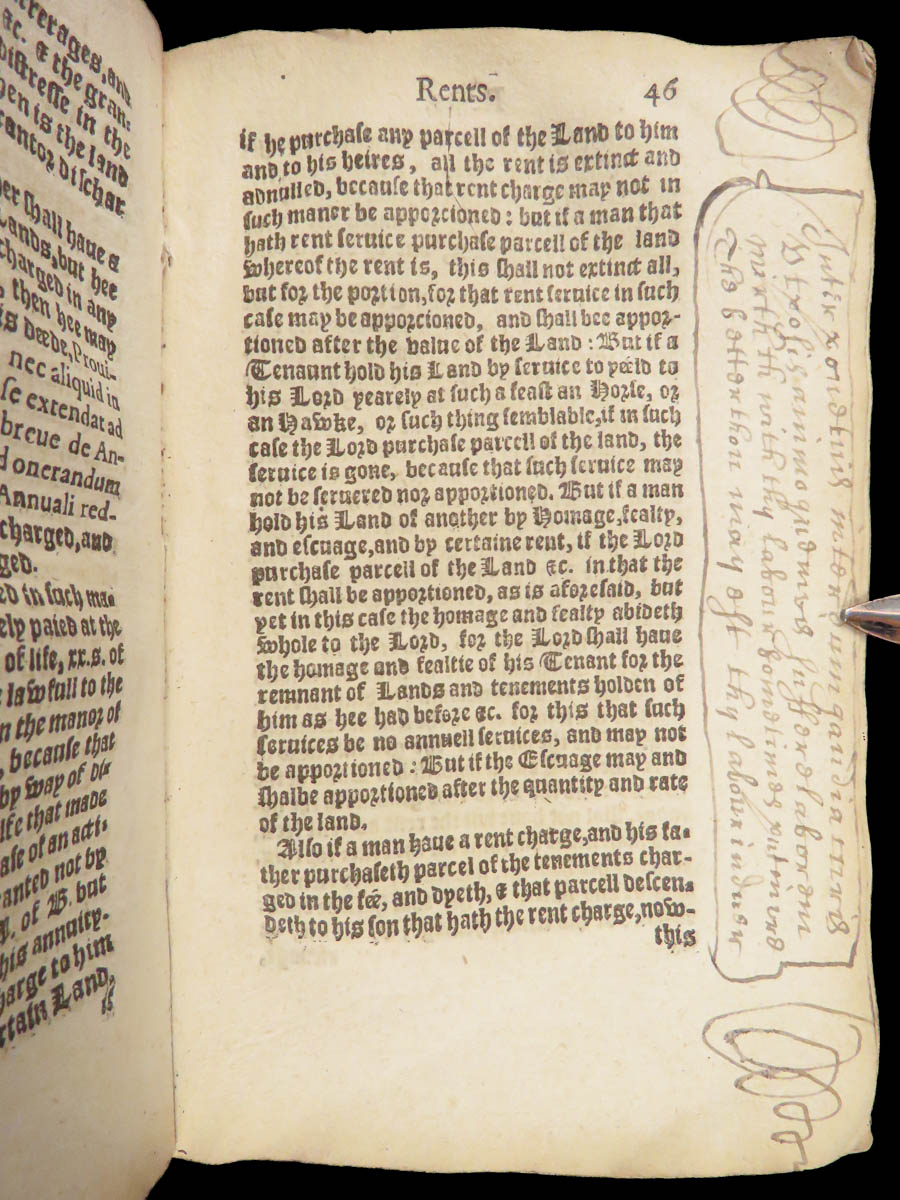 rrerages, and
&c. & the gran-
distresse in the
hen is the land
rantor dischar
der shall haue a
Lands, but hee
charged in any
, then hee may
is deede, Proui-
nec aliquid in
se extendat ad
breue de An-
d onerandum
Annuali red-
charged, and
ged.
ed in such ma-
ely paied at the
of life, xx.s. of
lawfull to the
n the manor of
, because that
by way of dis
ife that made
ase of an acti-
ranted not by
of B. but
his annuity.
harge to him
rtain Land,
if
Rents. 46
if he purchase any parcell of the Land to him
and to his heires, all the rent is extinct and
adnulled, because that rent charge may not in
such maner be apporcioned: but if a man that
hath rent seruice purchase parcell of the land
whereof the rent is, this shall not extinct all,
but for the portion, for that rent seruice in such
case may be apporcioned, and shall bee appor-
tioned after the value of the Land: But if a
Tenaunt hold his Land by seruice to yeeld to
his Lord yearely at such a feast an Horse, or
an Hawke, or such thing semblable, if in such
case the Lord purchase parcell of the land, the
seruice is gone, because that such seruice may
not be seruered nor apportioned. But if a man
hold his Land of another by Homage, fealty,
and escuage, and by certaine rent, if the Lord
purchase parcell of the Land &c. in that the
rent shall be apportioned, as is aforesaid, but
yet in this case the homage and fealty abideth
whole to the Lord, for the Lord shall haue
the homage and fealtie of his Tenant for the
remnant of Lands and tenements holden of
him as hee had before &c. for this that such
seruices be no annuell seruices, and may not
be apportioned: But if the Escuage may and
shalbe apportioned after the quantity and rate
of the land.
Also if a man haue a rent charge, and his fa-
ther purchaseth parcel of the tenements char-
ged in the fee, and dyeth, & that parcell descen-
deth to his son that hath the rent charge, now-
this
gaudia curis
animo quemvis laborem
mirth with thy labour somtimes put in ure
The better thou may est thy labour indure